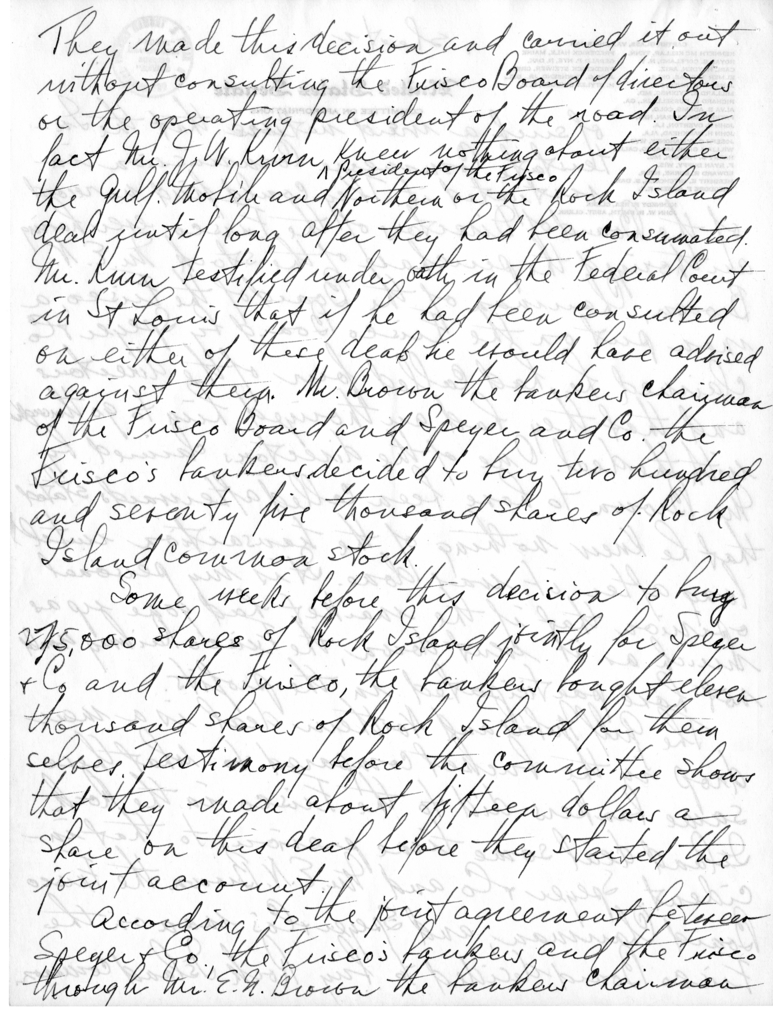 They made this decision and carried it out
without consulting the Frisco Board of directors
or the operating president of the road. In
fact Mr. J. W. Kurn, knew nothing about either
^ President of the Frisco
the Gulf. Mobile and Northern or the Rock Island
deal until long after they had been consumated.
Mr. Kurn testified under oath in the Federal Court
in St Louis that if he had been consulted
on either of these deals he would have advised
against them. Mr. Brown the bankers chairman
of the Frisco Board and Speyer and Co. the
Frisco's bankers decided to buy two hundred
and seventy five thousand shares of Rock
Island common stock.
Some weeks before this decision to buy
275,000 shares of Rock Island jointly for Speyer
+ Co and the Frisco, the bankers bought eleven
thousand shares of Rock Island for them
selves. Testimony before the committee shows
that they made about fifteen dollars a
share on this deal before they started the
joint account.
According to the joint agreement between
Speyer + Co. the Frisco's bankers and the Frisco
through Mr. E. N. Brown the bankers chairman